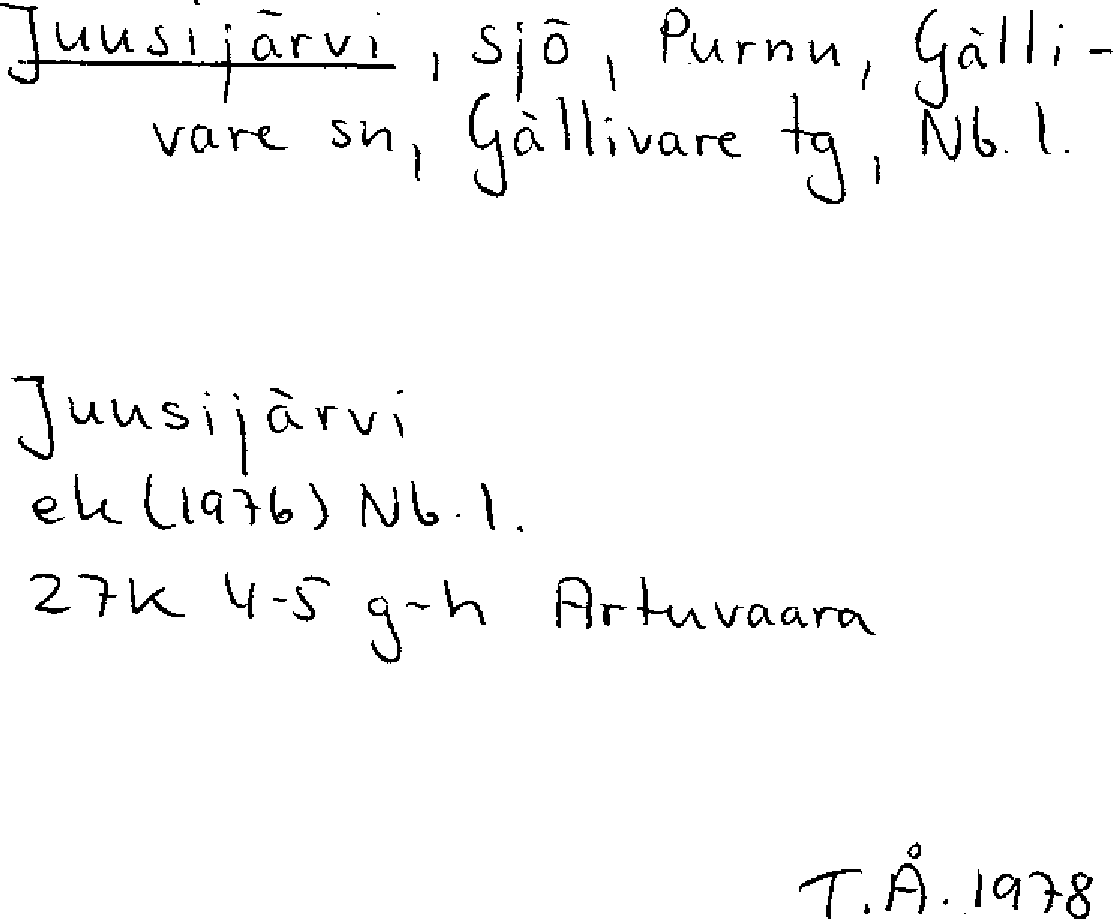 Juusijärvi, sjö, Purnu, Gälli-
vare sn, Gällivare tg, Nb. l.
Juusijärvi
ek (1976) Nb. l.
27K 4-5 g-h Artuvaara
T.Å. 1978